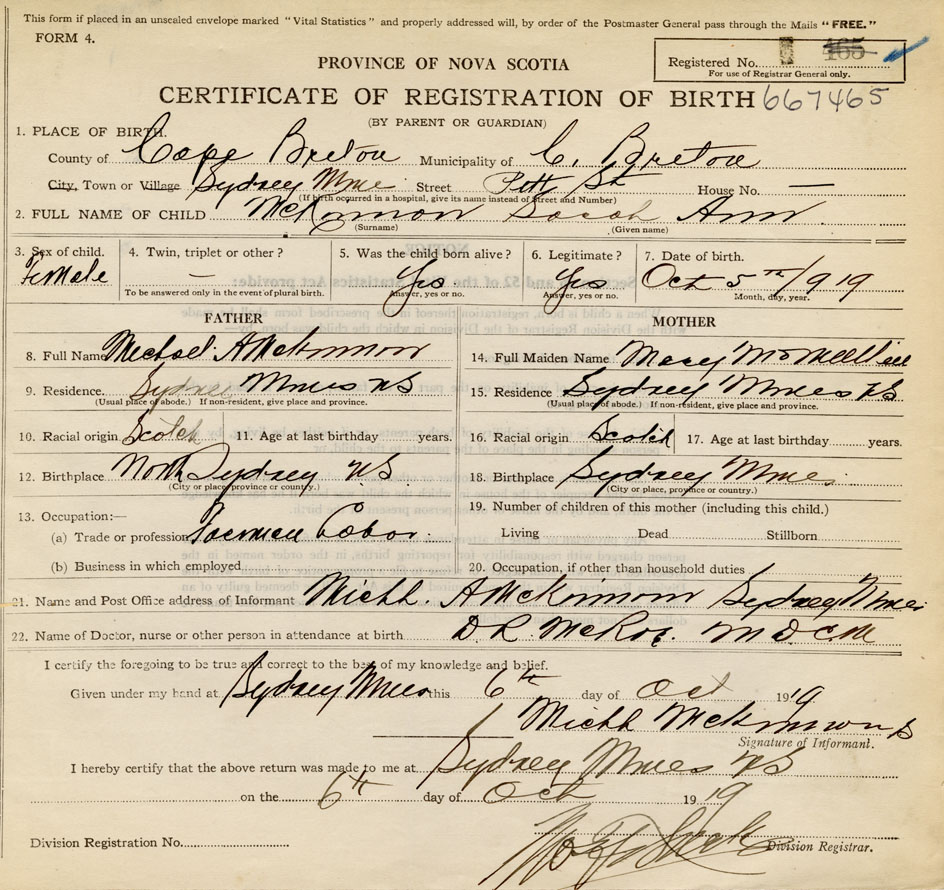 This form if placed in an unsealed envelope marked "Vital Statistics" and properly addressed will, by order of the Postmaster General pass through the Mails "FREE."
FORM 4.
Registered No. 165
For use of Registrar General only.
PROVINCE OF NOVA SCOTIA
CERTIFICATE OF REGISTRATION OF BIRTH 667465
(BY PARENT OR GUARDIAN)
1. PLACE OF BIRTH.
County of Cape Breton Municipality of C. Breton
City, Town or Village Sydney Mines Street Pitt St House No. —
(If birth occurred in a hospital, give its name instead of Street and Number)
2. FULL NAME OF CHILD McKinnon Sarah Ann
(Surname) (Given name)
3. Sex of child. 4. Twin, triplet or other? 5. Was the child born alive? 6. Legitimate? 7. Date of birth.
Female — Yes Yes Oct 5th /919
To be answered only in the event of plural birth. Answer, yes or no. Answer, yes or no. Month, day, year.
FATHER MOTHER
8. Full Name Michael A McKinnon 14. Full Maiden Name Mary
9. Residence Sydney Mines NS 15. Residence Sydney Mines NS
(Usual place of abode.) If non-resident, give place and province. (Usual place of abode.) If non-resident, give place and province.
10. Racial origin Scotch 11. Age at last birthday years. 16. Racial origin Scotch 17. Age at last birthday years.
12. Birthplace North Sydney N.S 18. Birthplace Sydney Mines
(City or place, province or country.) (City or place, province or country.)
13. Occupation:— 19. Number of children of this mother (including this child.)
(a) Trade or profession Labor. Living Dead Stillborn
(b) Business in which employed 20. Occupation, if other than household duties
21. Name and Post Office address of Informant Michl. A McKinnon Sydney Mines
22. Name of Doctor, nurse or other person in attendance at birth M D C M
I certify the foregoing to be true and correct to the best of my knowledge and belief.
Given under my hand at Sydney Mines this 6th day of Oct 1919
Michl McKinnon
Signature of Informant.
I hereby certify that the above return was made to me at Sydney Mines NS
on the 6th day of Oct 1919
Division Registration No. Division Registrar.